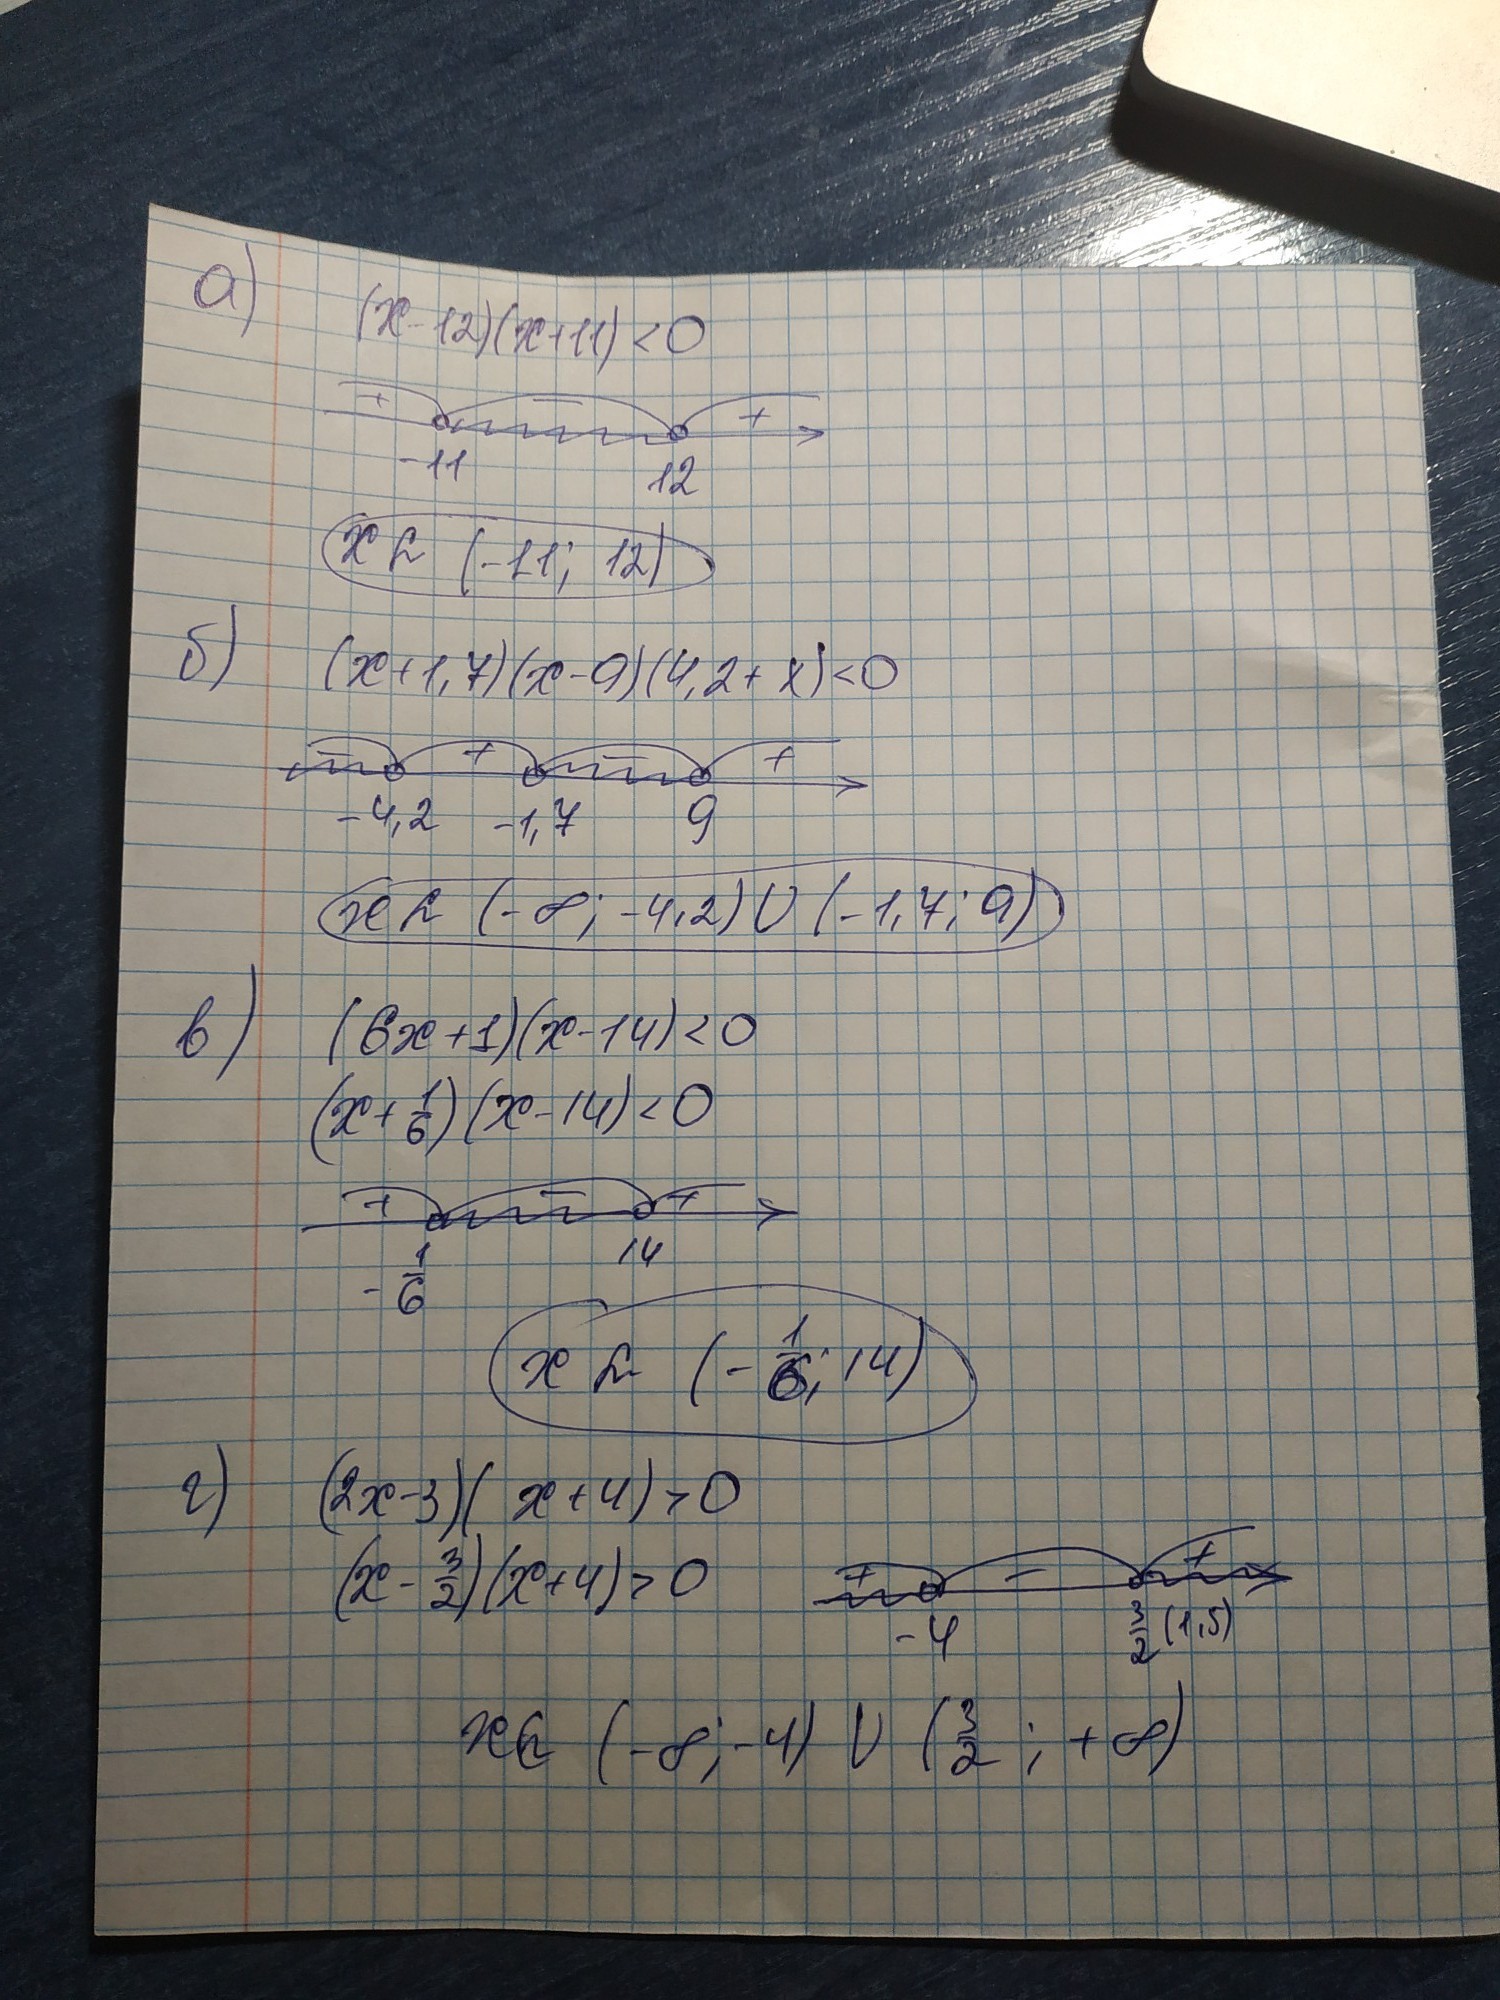 а) (x-12)(x+11)<0
+ − +
-11 12
x∈ (-11; 12)
б) (x+1,7)(x-9)(4,2+x)<0
− + − +
-4,2 -1,7 9
x∈ (-∞; -4,2)∪(-1,7; 9)
в) (6x+1)(x-14)<0
(x+1/6)(x-14)<0
+ − +
-1/6 14
x∈ (-1/6; 14)
г) (2x-3)( x+4)>0
(x-3/2)(x+4)>0
+ − +
-4 3/2 (1,5)
x∈ (-∞; -4) ∪ (3/2 ; +∞)